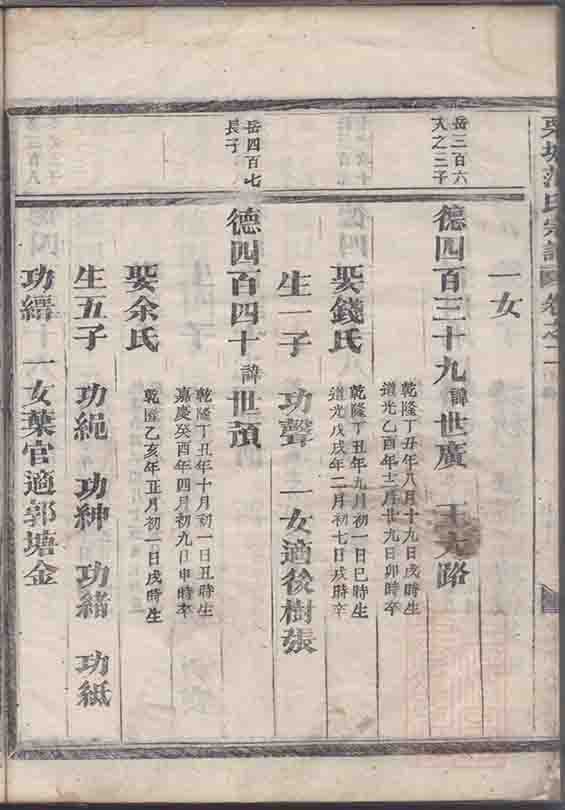 氏宗譜 卷之一
一女
岳三百六
之三子
德四百三十九諱世廣 王大路
乾隆丁丑年八月十九日戌時生
道光乙酉年十二月廿九日卯時卒
娶錢氏
乾隆丁丑年九月初一日巳時生
道光戊戌年二月初七日戌時卒
生一子 功聲 一女適後樹張
岳四百七
長子
德四百四十諱世
乾隆丁丑年十月初一日丑時生
嘉慶癸酉年四月初九日申時卒
娶余氏
乾隆乙亥年正月初一日戌時生
生五子 功繩 功紳 功緒 功紙
功縉 一女葉官適郭塘金